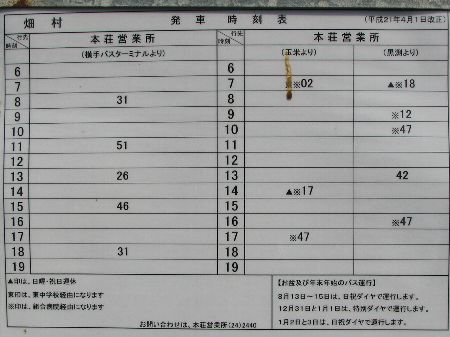 畑村 発車時刻表 (平成21年4月1日改正)
時刻 行先 本荘営業所 時刻 行先 本荘営業所
(横手バスターミナルより) (玉米より) (黒渕より)
6 6
7 7 ※※02 ▲※18
8 31 8
9 9 ※12
10 10 ※47
11 51 11
12 12
13 26 13 42
14 14 ▲※17
15 46 15
16 16 ※47
17 17 ※47
18 31 18
19 19
▲印は、日曜・祝日運休
東印は、東中学校経由になります
※印は、総合病院経由になります
お問い合わせは、本荘営業所(24)2440
【お盆及び年末年始のバス運行】
8月13日~15日は、日祝ダイヤで運行します。
12月31日と1月1日は、特別ダイヤで運行します。
1月2日と3日は、日祝ダイヤで運行します。